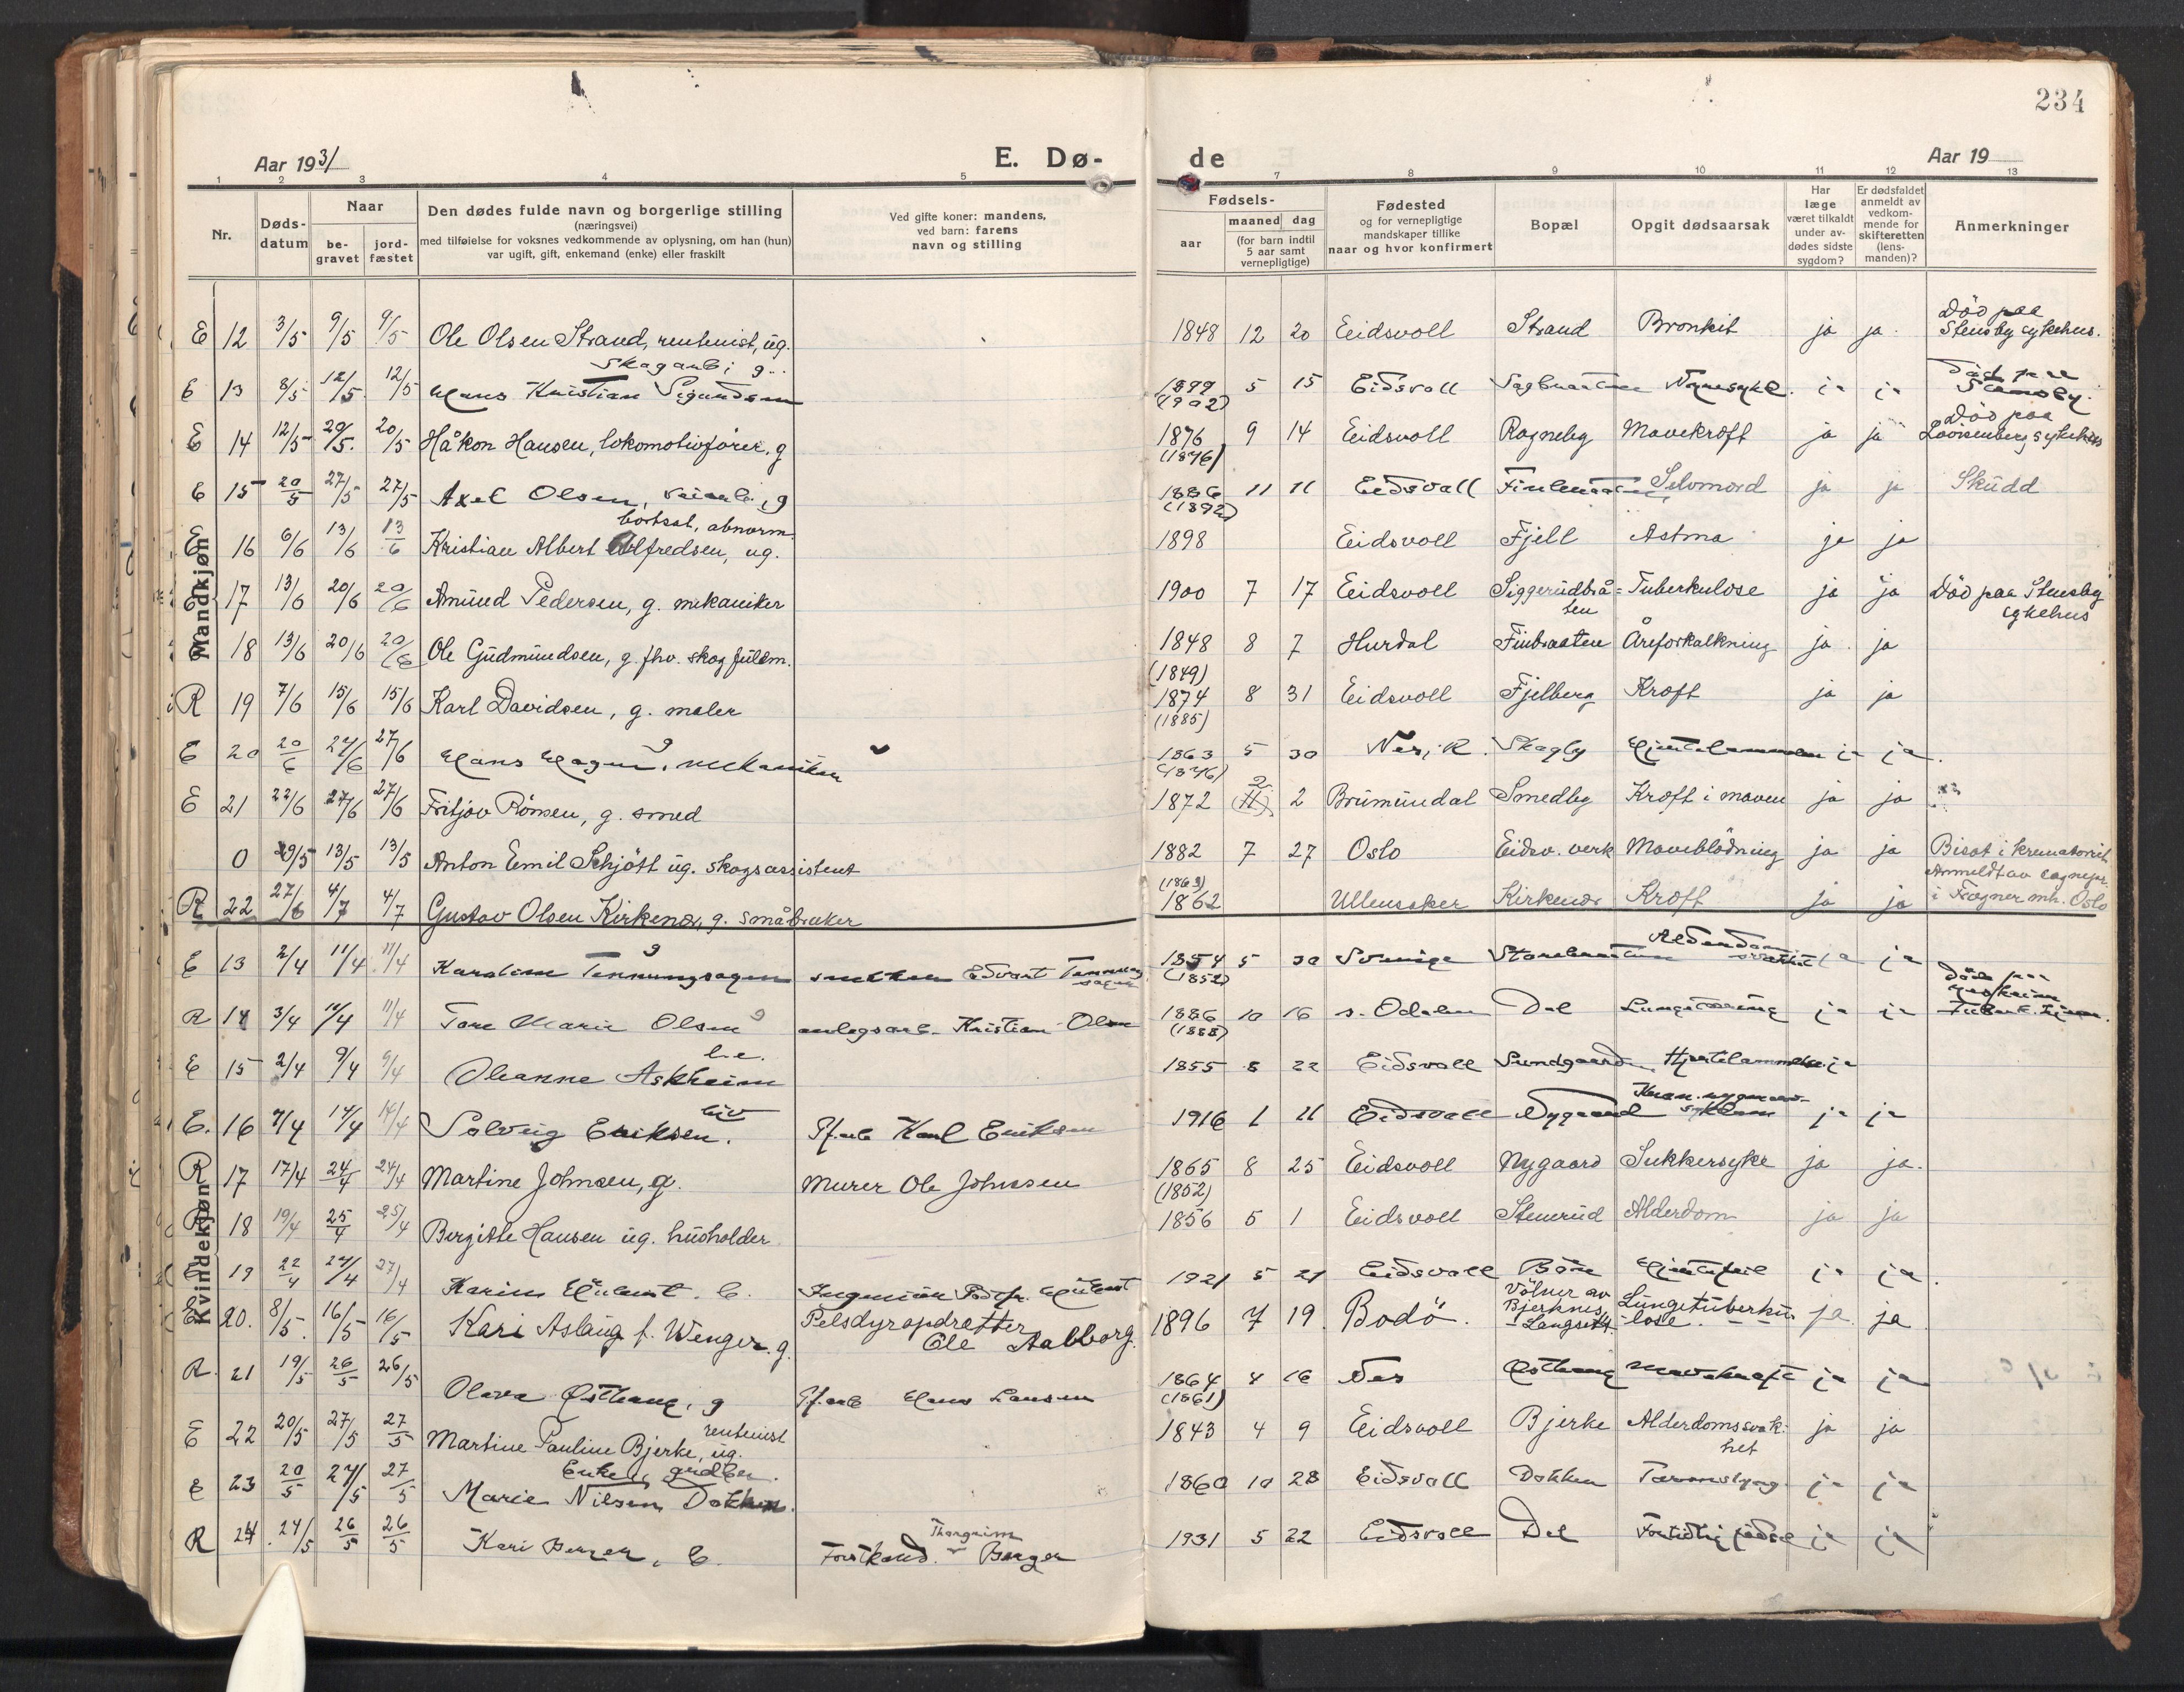 234
Aar 1931
E. Dø-
de
Aar 19
1 2 3 4 5 7 8 9 10 11 12 13
Nr.
Døds-
datum
Naar
be-
gravet
jord-
fæstet
Den dødes fulde navn og borgerlige stilling
(næringsvei)
med tilføielse for voksnes vedkommende av oplysning, om han (hun)
var ugift, gift, enkemand (enke) eller fraskilt
Ved gifte koner: mandens,
ved barn: farens
navn og stilling
Fødsels-
aar
maaned dag
(for barn indtil
5 aar samt
vernepligtige)
Fødested
og for vernepligtige
mandskaper tillike
naar og hvor konfirmert
Bopæl
Opgit dødsaarsak
Har
læge
været tilkaldt
under av-
dødes sidste
sygdom?
Er dødsfaldet
anmeldt av
vedkom-
mende for
skifteretten
(lens-
manden)?
Anmerkninger
Mandkjøn
E 12 3/5 9/5 9/5 Ole Olsen Strand, rentenist, ug. 1848 12 20 Eidsvoll Strand Bronkit ja ja. Död paa Stensby sykehus.
E 13 8/5 12/5 12/5 Hans Kristian Sigurdsen skogarb; g. 1899 (1902) 5 15 Eidsvoll Nyresykd. ja ja Död paa Stensby.
E 14 12/5 20/5 20/5 Håkon Hansen, lokomotivfører, g 1876 (1876) 9 14 Eidsvoll Ragneby Mavekræft ja ja Död paa Lovisenberg sykehus
E 15 20/5 27/5 27/5 Axel Olsen, veiarb., g 1886 (1892) 11 11 Eidsvoll Selvmord ja ja Skudd
E 16 6/6 13/6 13/6 Kristian Albert Alfredsen, ug. bortsat, abnorm 1898 Eidsvoll Fjell Astma ja ja
E 17 13/6 20/6 20/6 Amund Pedersen, g. mekaniker 1900 7 17 Eidsvoll Siggerudbrå=ten Tuberkulose ja ja Död paa Stensby sykehus
18 13/6 20/6 20/6 Ole Gudmundsen, g. fhv. skogfuldm. 1848 (1849) 8 7 Hurdal Finbraaten Åreforkalkning ja ja
R 19 7/6 15/6 15/6 Karl Davidsen, g. maler 1874 (1885) 8 31 Eidsvoll Fjelberg Kræft ja ja
E 20 20/6 27/6 27/6 Hans Hagen, g mekaniker 1863 (1876) 5 30 Nes, R. Skogly Hjertelammelse ja ja.
E 21 22/6 27/6 27/6 Fritjov Rönsen, g. smed 1872 2 2 Brumundal Smedby Kræft i maven ja ja
0 29/5 13/5 13/5 Anton Emil Schjött ug. skogsassistent 1882 7 27 Oslo Eidsv. verk Maveblödning ja ja Bisat i krematoriet. Anmeldt av sognepr. i Fragner mh. Oslo
R 22 27/6 4/7 4/7 Gustav Olsen Kirkenær, g. småbruker (1863) 1862 Ullensaker Kirkenær Kræft ja ja
Kvindekjøn
E 13 2/4 11/4 11/4 Karoline Tønnungsagen g snekker Edvart Tønnungsagen 1854 (1852) 5 30 Sverige Alderdomssvakhet ja ja
R 14 3/4 11/4 11/4 Tora Marie Olsen g anlegsarb. Kristian Olsen 1886 (1888) 10 16 s. Odalen Dal Lungetæring ja ja Död paa Jesheim Tuberk. hjem.
E 15 2/4 9/4 9/4 Oleanne Askheim l.e. 1855 8 22 Eidsvoll Sundgaarden Hjertelammelse ja
E. 16 7/4 14/4 14/4 Solveig Eriksen. Gf.arb Karl Eriksen 1916 1 11 Eidsvoll Nygaard ja ja
R 17 17/4 24/4 24/4 Martine Johnsen, g. Murer Ole Johnsen 1865 8 25 Eidsvoll Nygaard Sukkersyke ja ja.
R 18 19/4 25/4 25/4 Bergitte Hansen ug. husholder (1852) 1856 5 1 Eidsvoll Stenerud Alderdom ja ja
E 19 22/4 27/4 27/4 Karin b. Ingeniør 1921 5 21 Eidsvoll Bön Hjertefeil ja ja.
E 20. 8/5. 16/5 16/5 Kari Aslaug f. Wenger. g. Pelsdyropdrætter Ole Aalborg. 1896 7 19 Bodö. Völner av Bjerknes, Langset. Lungetuberku-lose. ja ja
R 21 19/5 26/5 26/5 Olava Østhang, g Gf.arb Hans Larsen 1864 (1861) 4 16 Nes Østhang Mavekræft ja ja
E 22 20/5 27/5 27/5 Martine Pauline Bjerke, ug. rentenist 1843 4 9 Eidsvoll Bjerke Alderdomssvakhet ja ja
E 23 20/5 27/5 27/5 Marie Nilsen Dokken. Enke, grdbr. 1860 10 28 Eidsvoll Dokken Tarmslyng ja ja
R 24 24/5 26/5 26/5 Kari Berger, b. Forstkand. Thorgrim Berger 1931 5 22 Eidsvoll Dal Fortidlig födsel ja ja